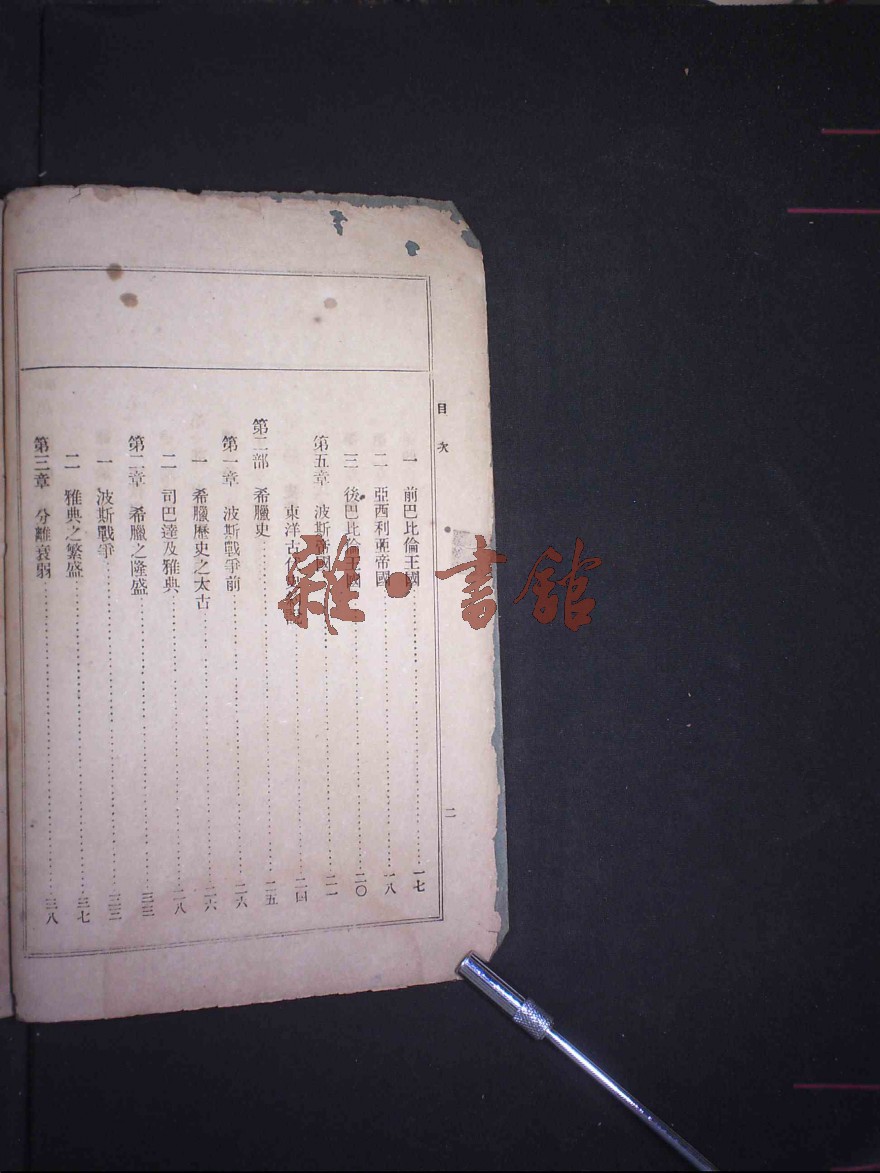 目次 二
一 前巴比倫王國……一七
二 亞西利亞帝國……一八
三 後巴比倫王國……二〇
第五章 波斯帝國……二一
東洋古……二四
第二部 希臘史……二五
第一章 波斯戰爭前……二六
一 希臘歷史之太古……二六
二 司巴達及雅典……二八
第二章 希臘之隆盛……三三
一 波斯戰爭……三三
二 雅典之繁盛……三七
第三章 分離衰弱……三八
雜·書館